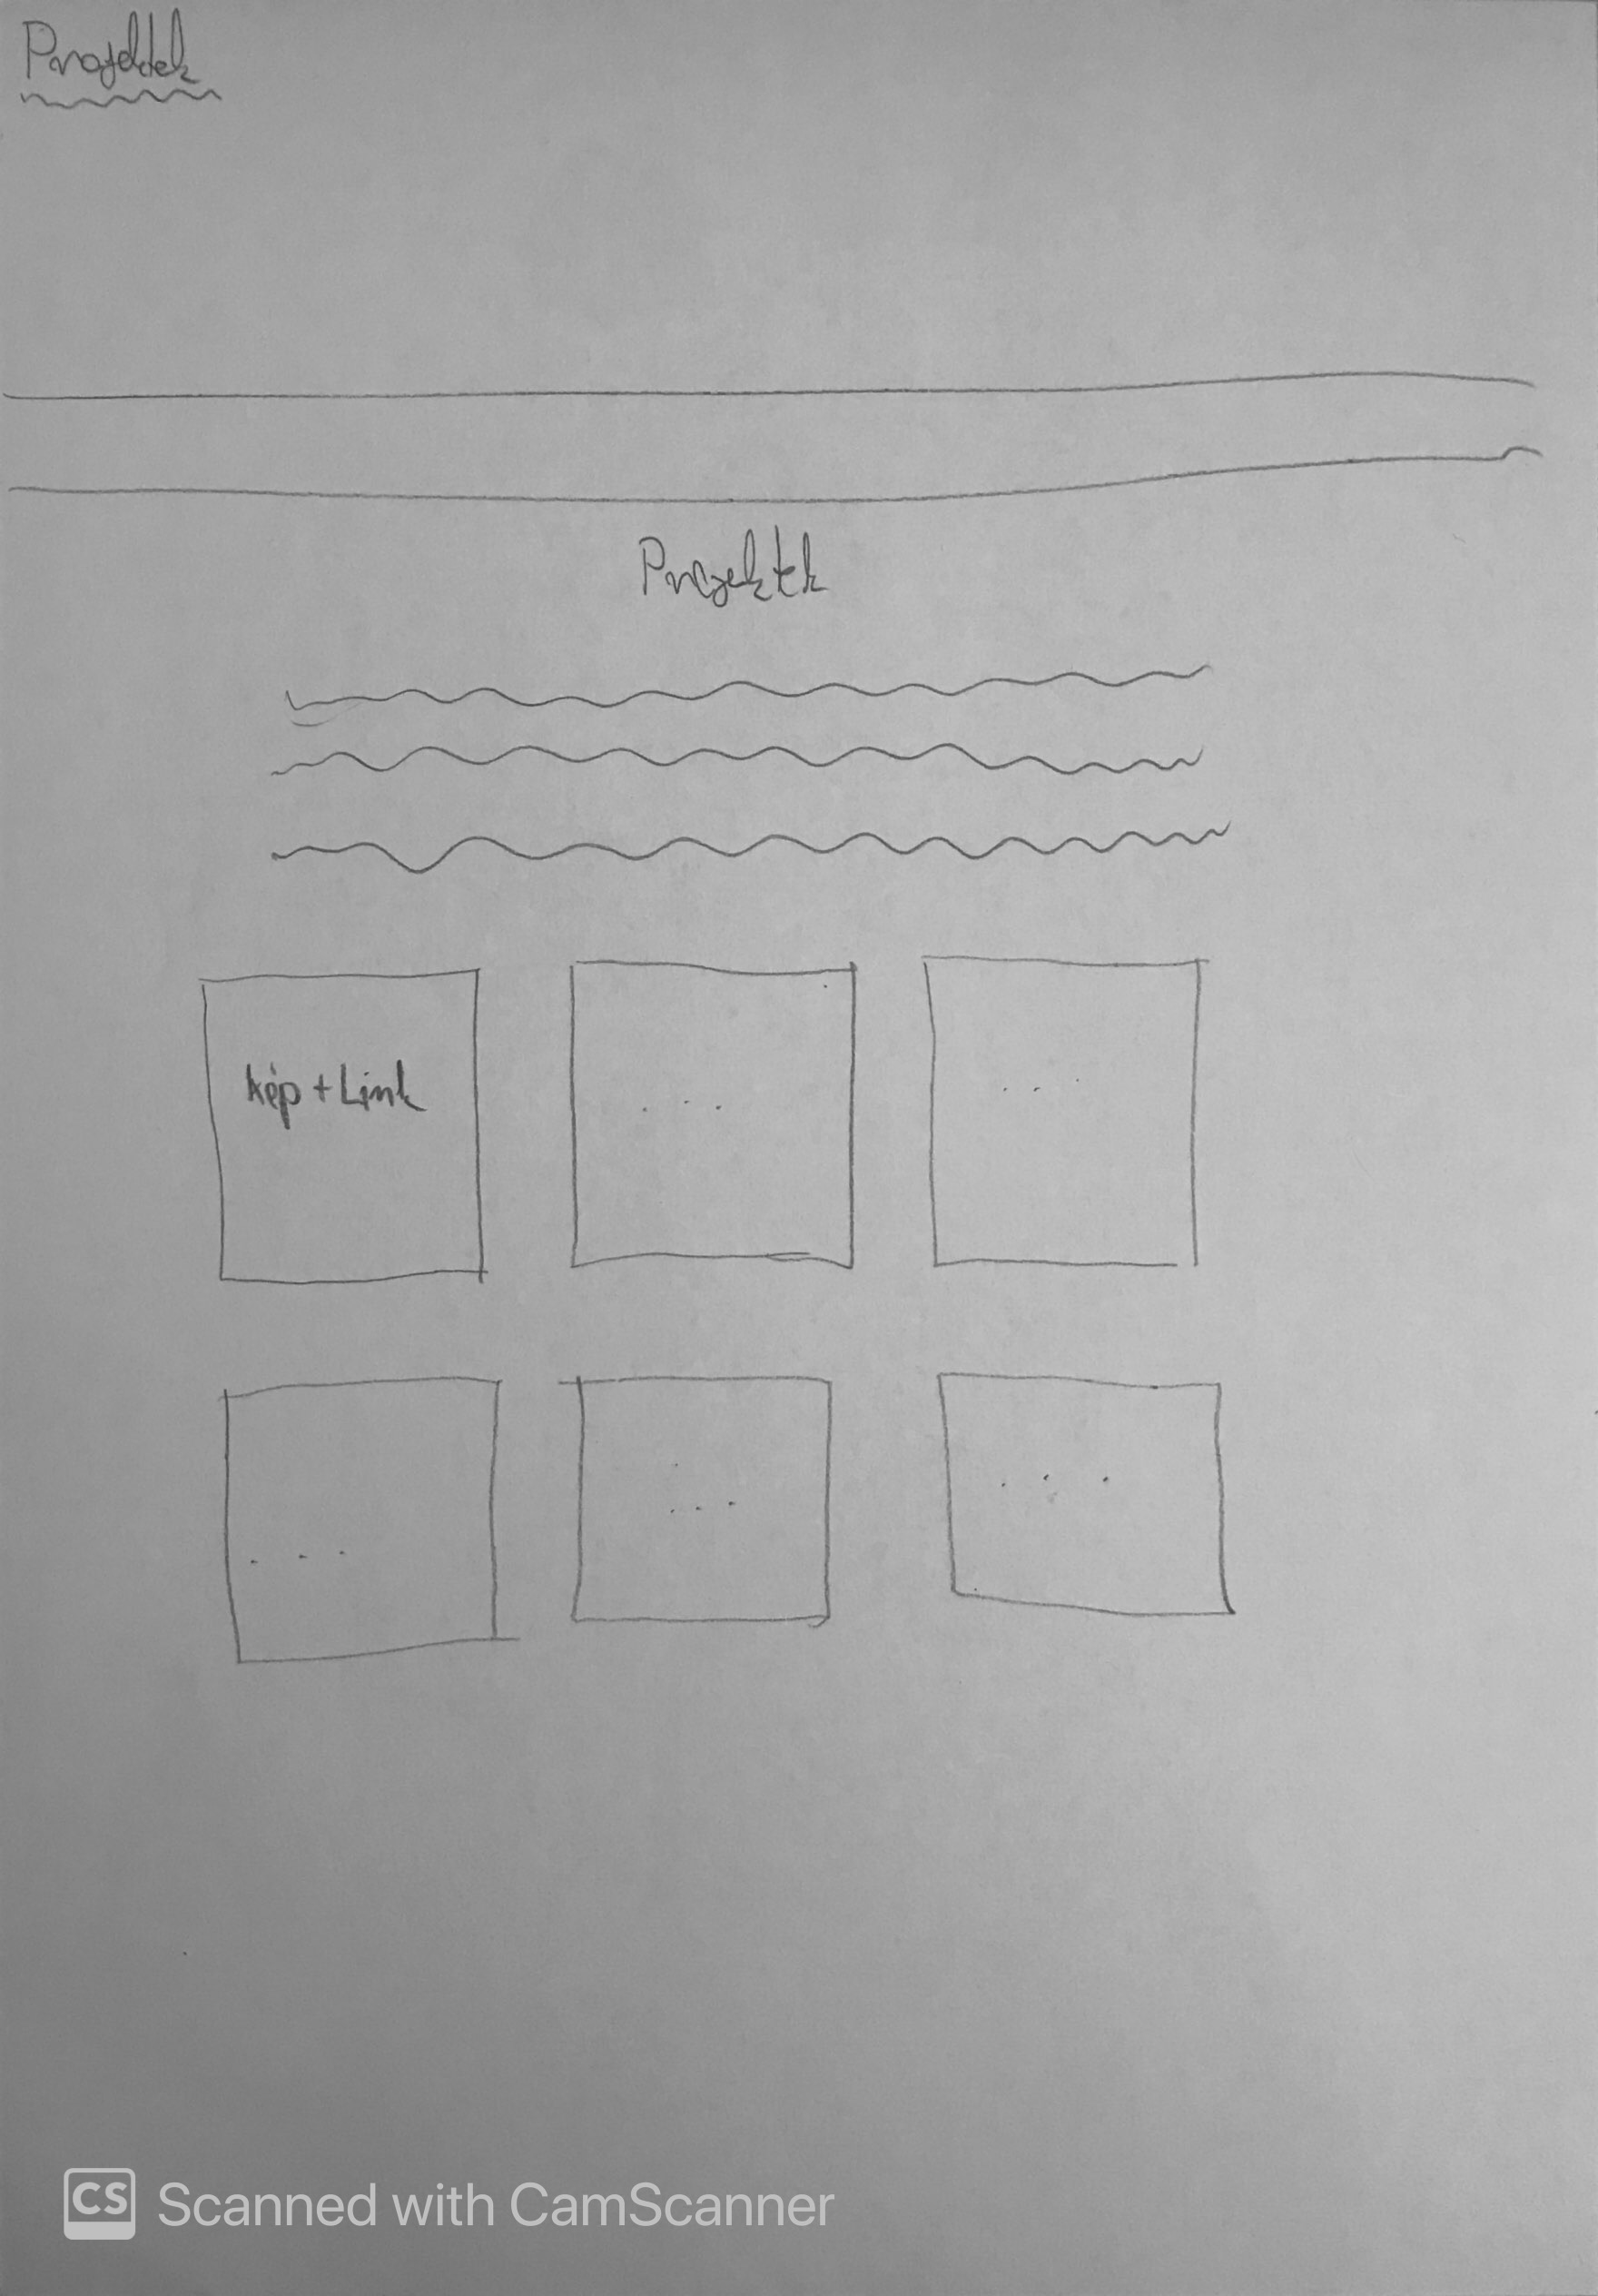 Projektek
Projektek
Kép + Link
...
...
...
...
...
CS Scanned with CamScanner